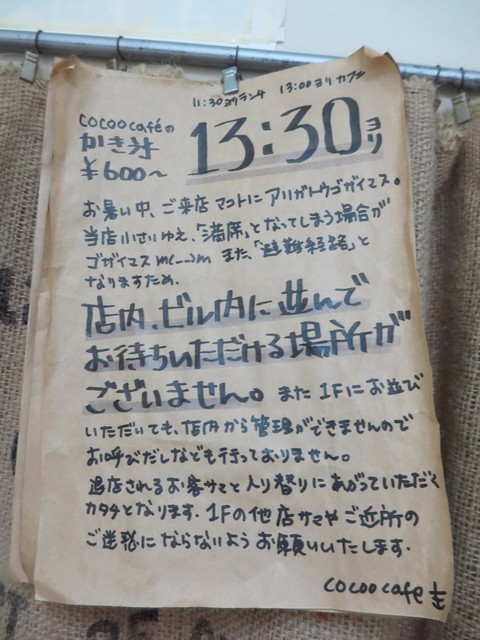 11:30ヨリランチ 13:00ヨリカフェ
cocoo caféの
かき氷
¥600〜
13:30ヨリ
お暑い中、ご来店マコトニアリガトウゴザイマス。
当店小さいゆえ、「満席」となってしまう場合が
ゴザイマス m(__)m また、「避難経路」と
なりますため、
店内、ビル内に並んで
お待ちいただける場所が
ございません。また 1Fにお並び
いただいても、店内から管理ができませんので
お呼びだしなども行っておりません。
退店されるお客サマと入り替りにあがっていただく
カタチとなります。1Fの他店サマやご近所の
ご迷惑にならないようお願いいたします。
cocoo cafe 主